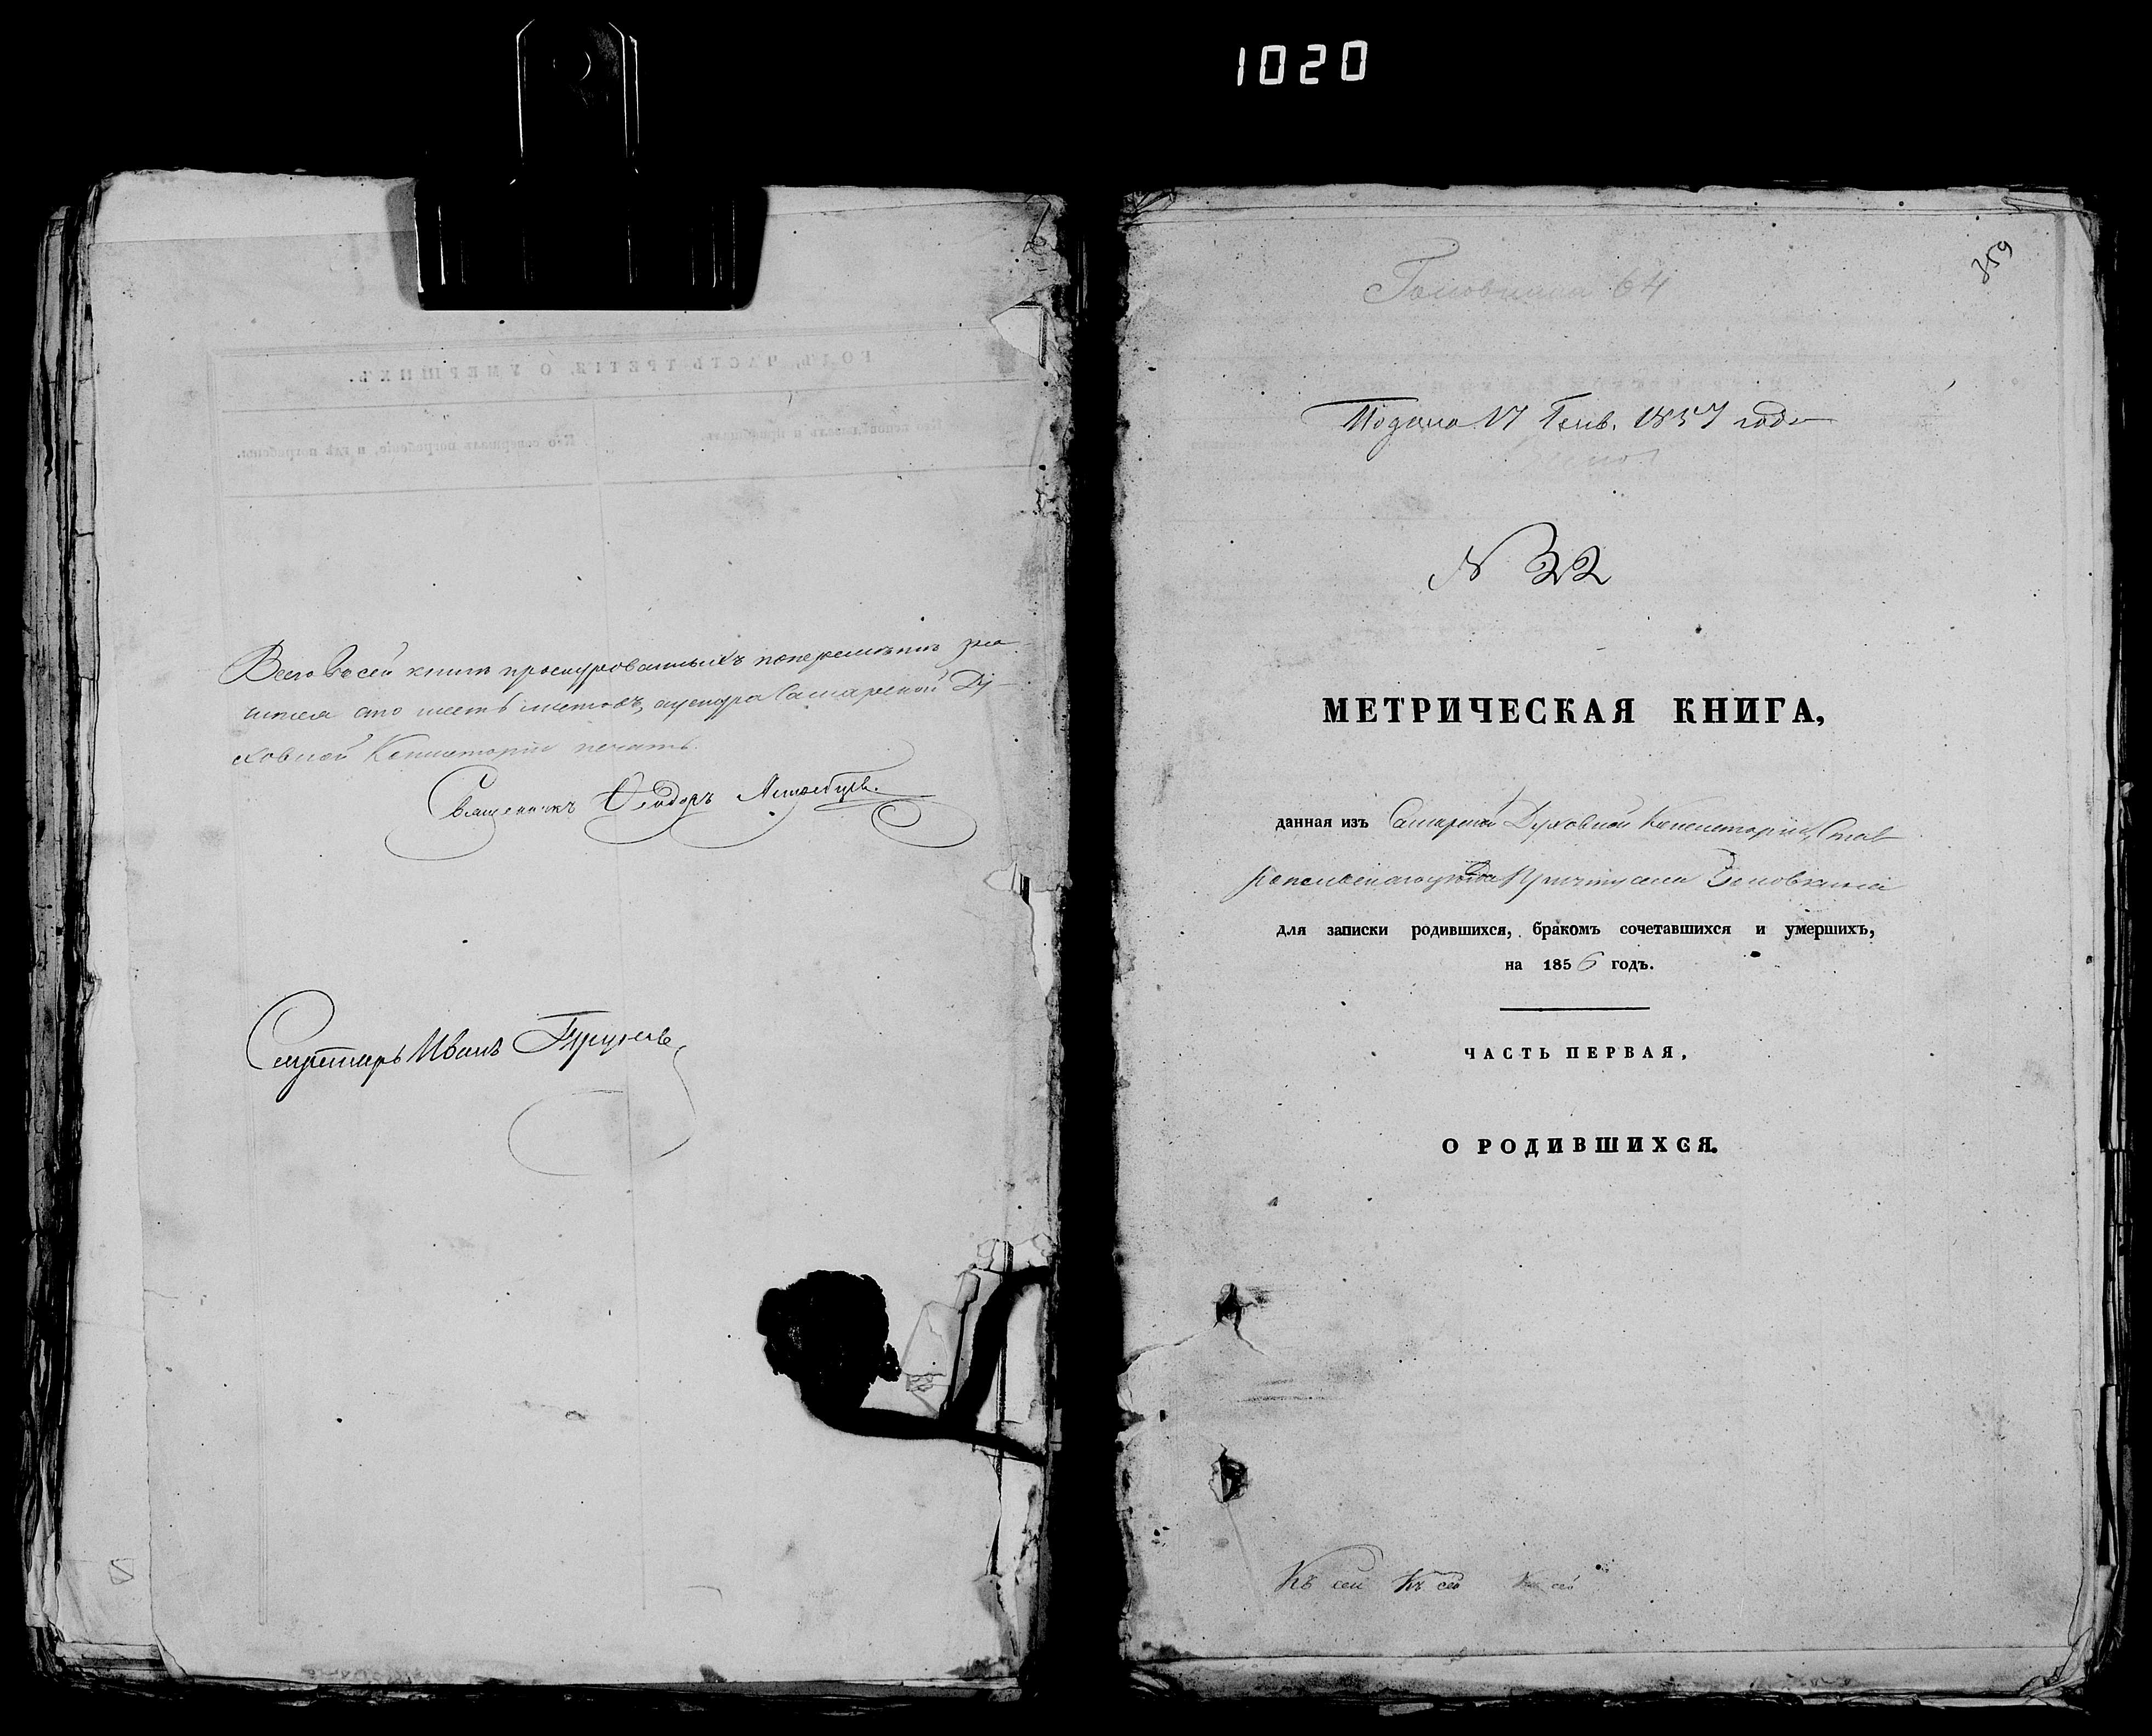 1020
ГОДЪ, ЧАСТЬ ТРЕТІЯ, О УМЕРШИХЪ.
Кто исповѣдывалъ и пріобщалъ.
Кто совершалъ погребеніе, и гдѣ погребены.
Всего въ сей книгѣ прошнурованныхъ
сто шесть листовъ, Самарской Ду-
ховной Консисторіи печать.
Священникъ Ѳеодоръ
Секретарь Иванъ
359
64
Подана 17 Генв. 1857 года
N 32
МЕТРИЧЕСКАЯ КНИГА,
данная изъ Самарской Духовной Консисторіи, Став
ропольскаго уѣзда Причту села Головкина
для записки родившихся, бракомъ сочетавшихся и умершихъ,
на 1856 годъ.
ЧАСТЬ ПЕРВАЯ,
О РОДИВШИХСЯ.
Къ сей Къ сей Къ сей